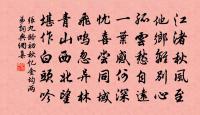 江渚秋風至
他鄉離別心
孤雲愁自遠
一葉感何深
憂喜嘗同域
飛鳴忽異林
青山西北望
堪作白頭吟
張九齡初秋憶金均兩
弟詞典網集